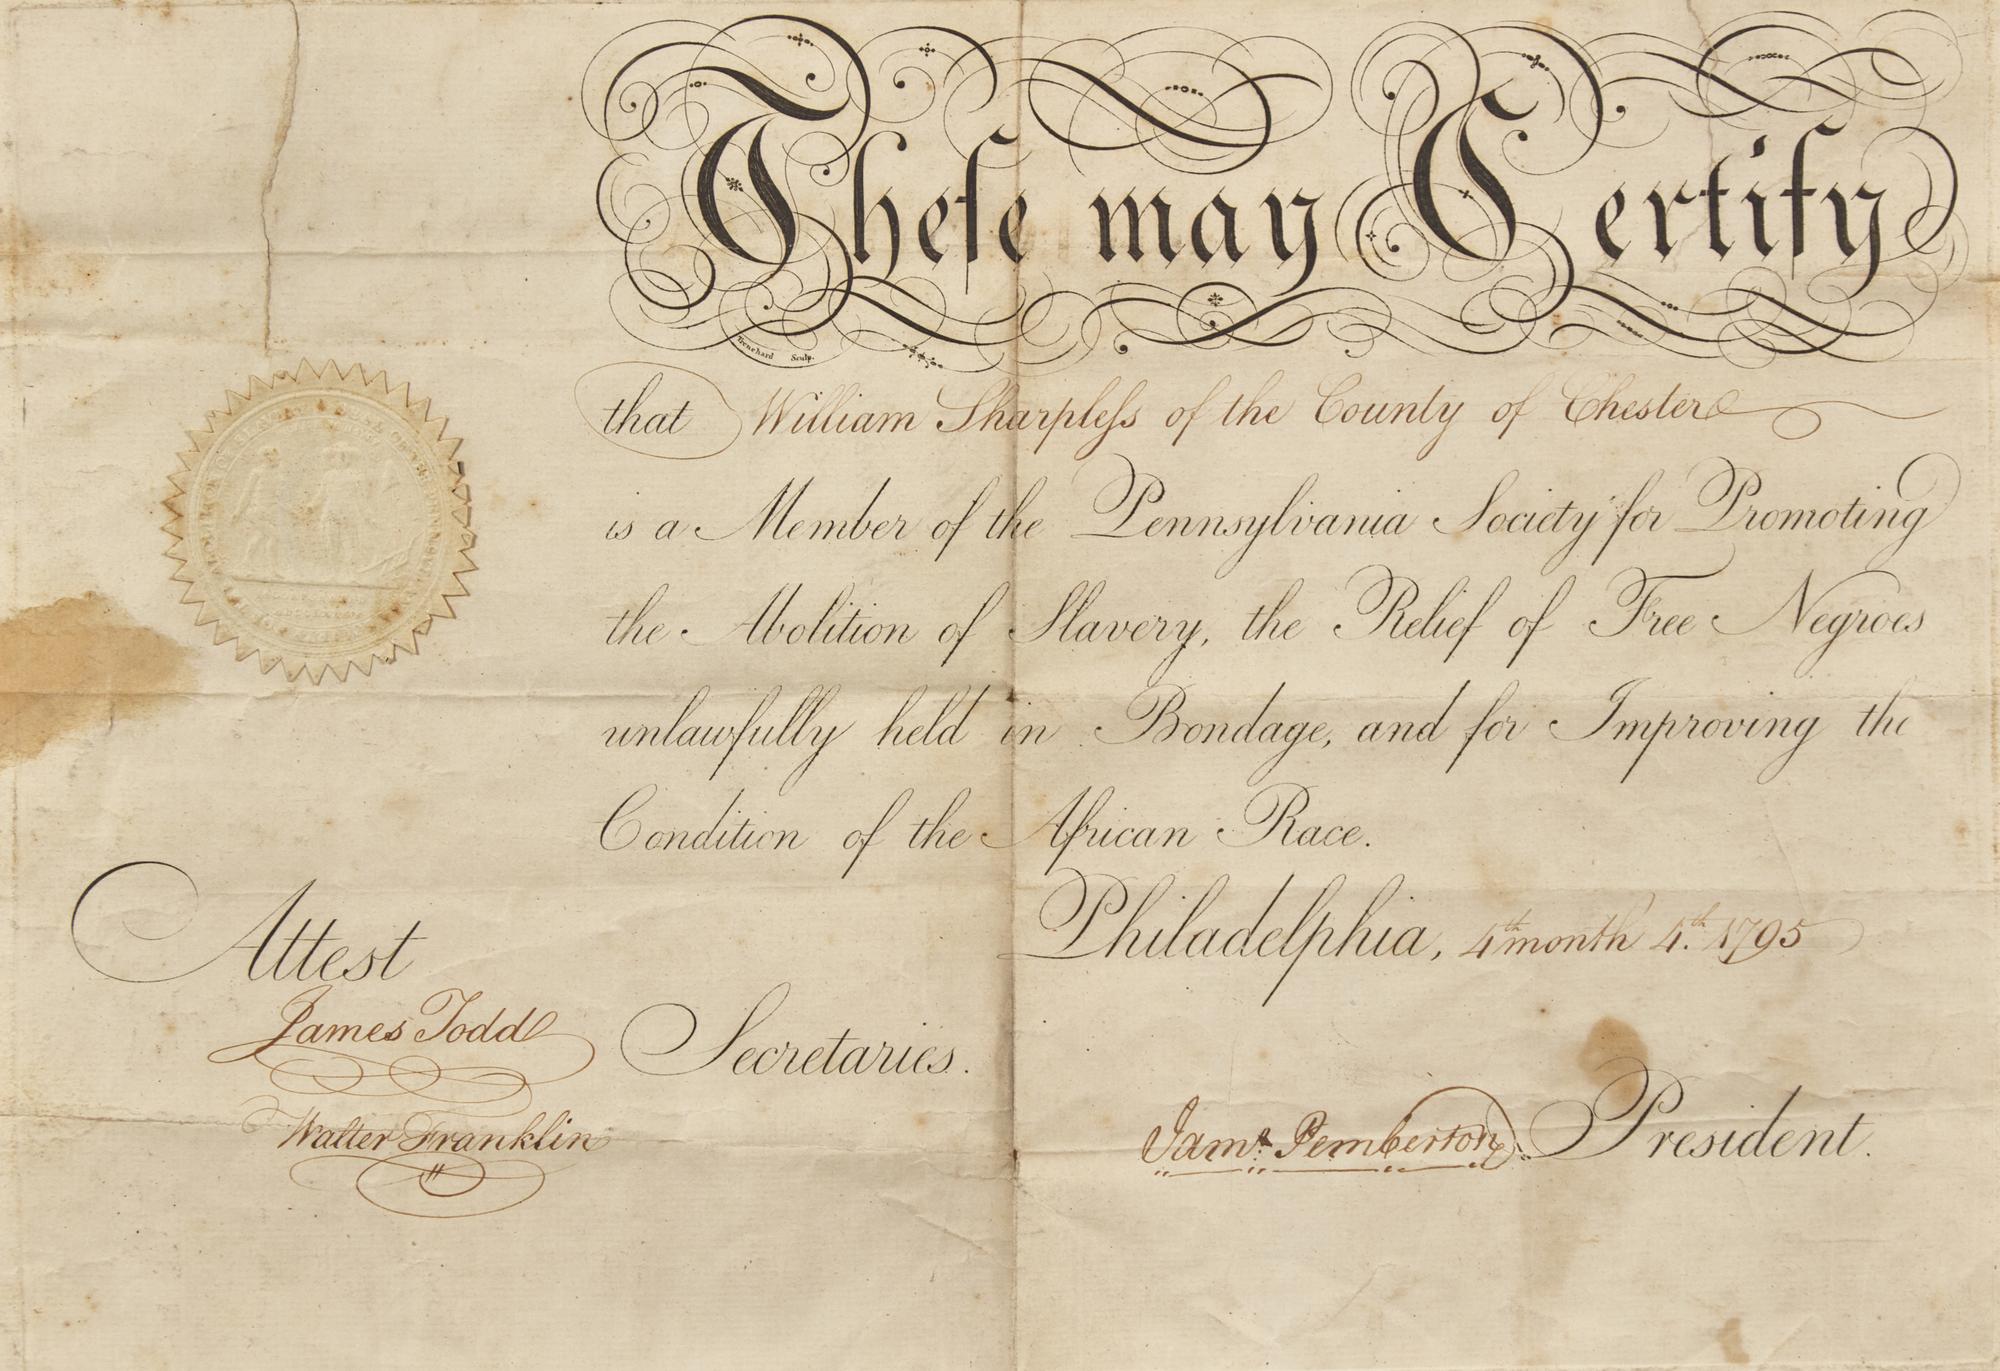 Theſe may Certify
Trenchard Sculp.
that William Sharpleſs of the County of Chester
is a Member of the Pennsylvania Society for Promoting
the Abolition of Slavery, the Relief of Free Negroes
unlawfully held in Bondage, and for Improving the
Condition of the African Race.
Philadelphia, 4th month 4.th 1795
Attest
James Todd
Secretaries.
Walter Franklin
Jams. Pemberton President.